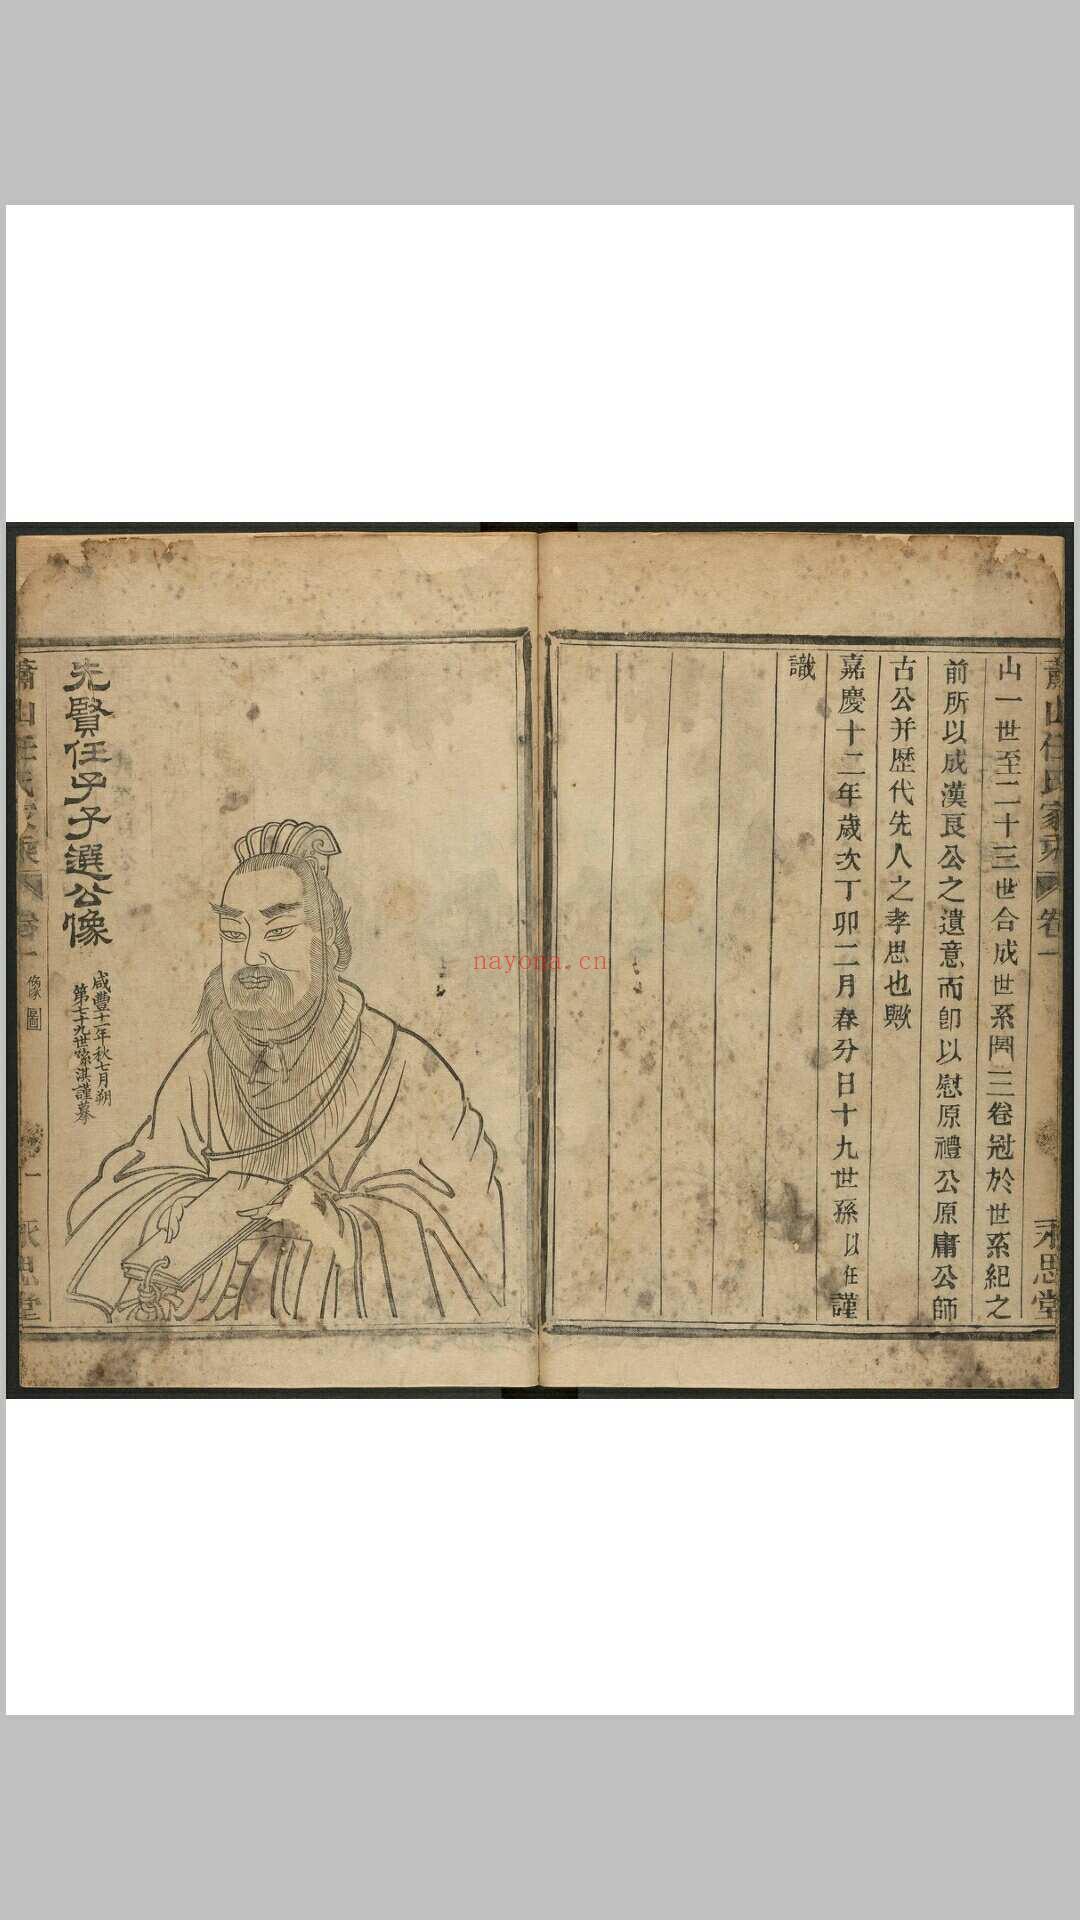 蕭山任氏家乘 卷一 永思堂
山一世至二十三世合成世系圖三卷冠於世系紀之
前所以成漢良公之遺意而卽以慰原禮公原庸公師
古公并歴代先人之孝思也歟
嘉慶十二年歲次丁卯二月春分日十九世孫以任謹
識
先賢任子子選公像
咸豐十一年秋七月朔
第七十九世裔淇謹摹
蕭山任氏家乘 卷一 像圖 一 永思堂
nayona.cn